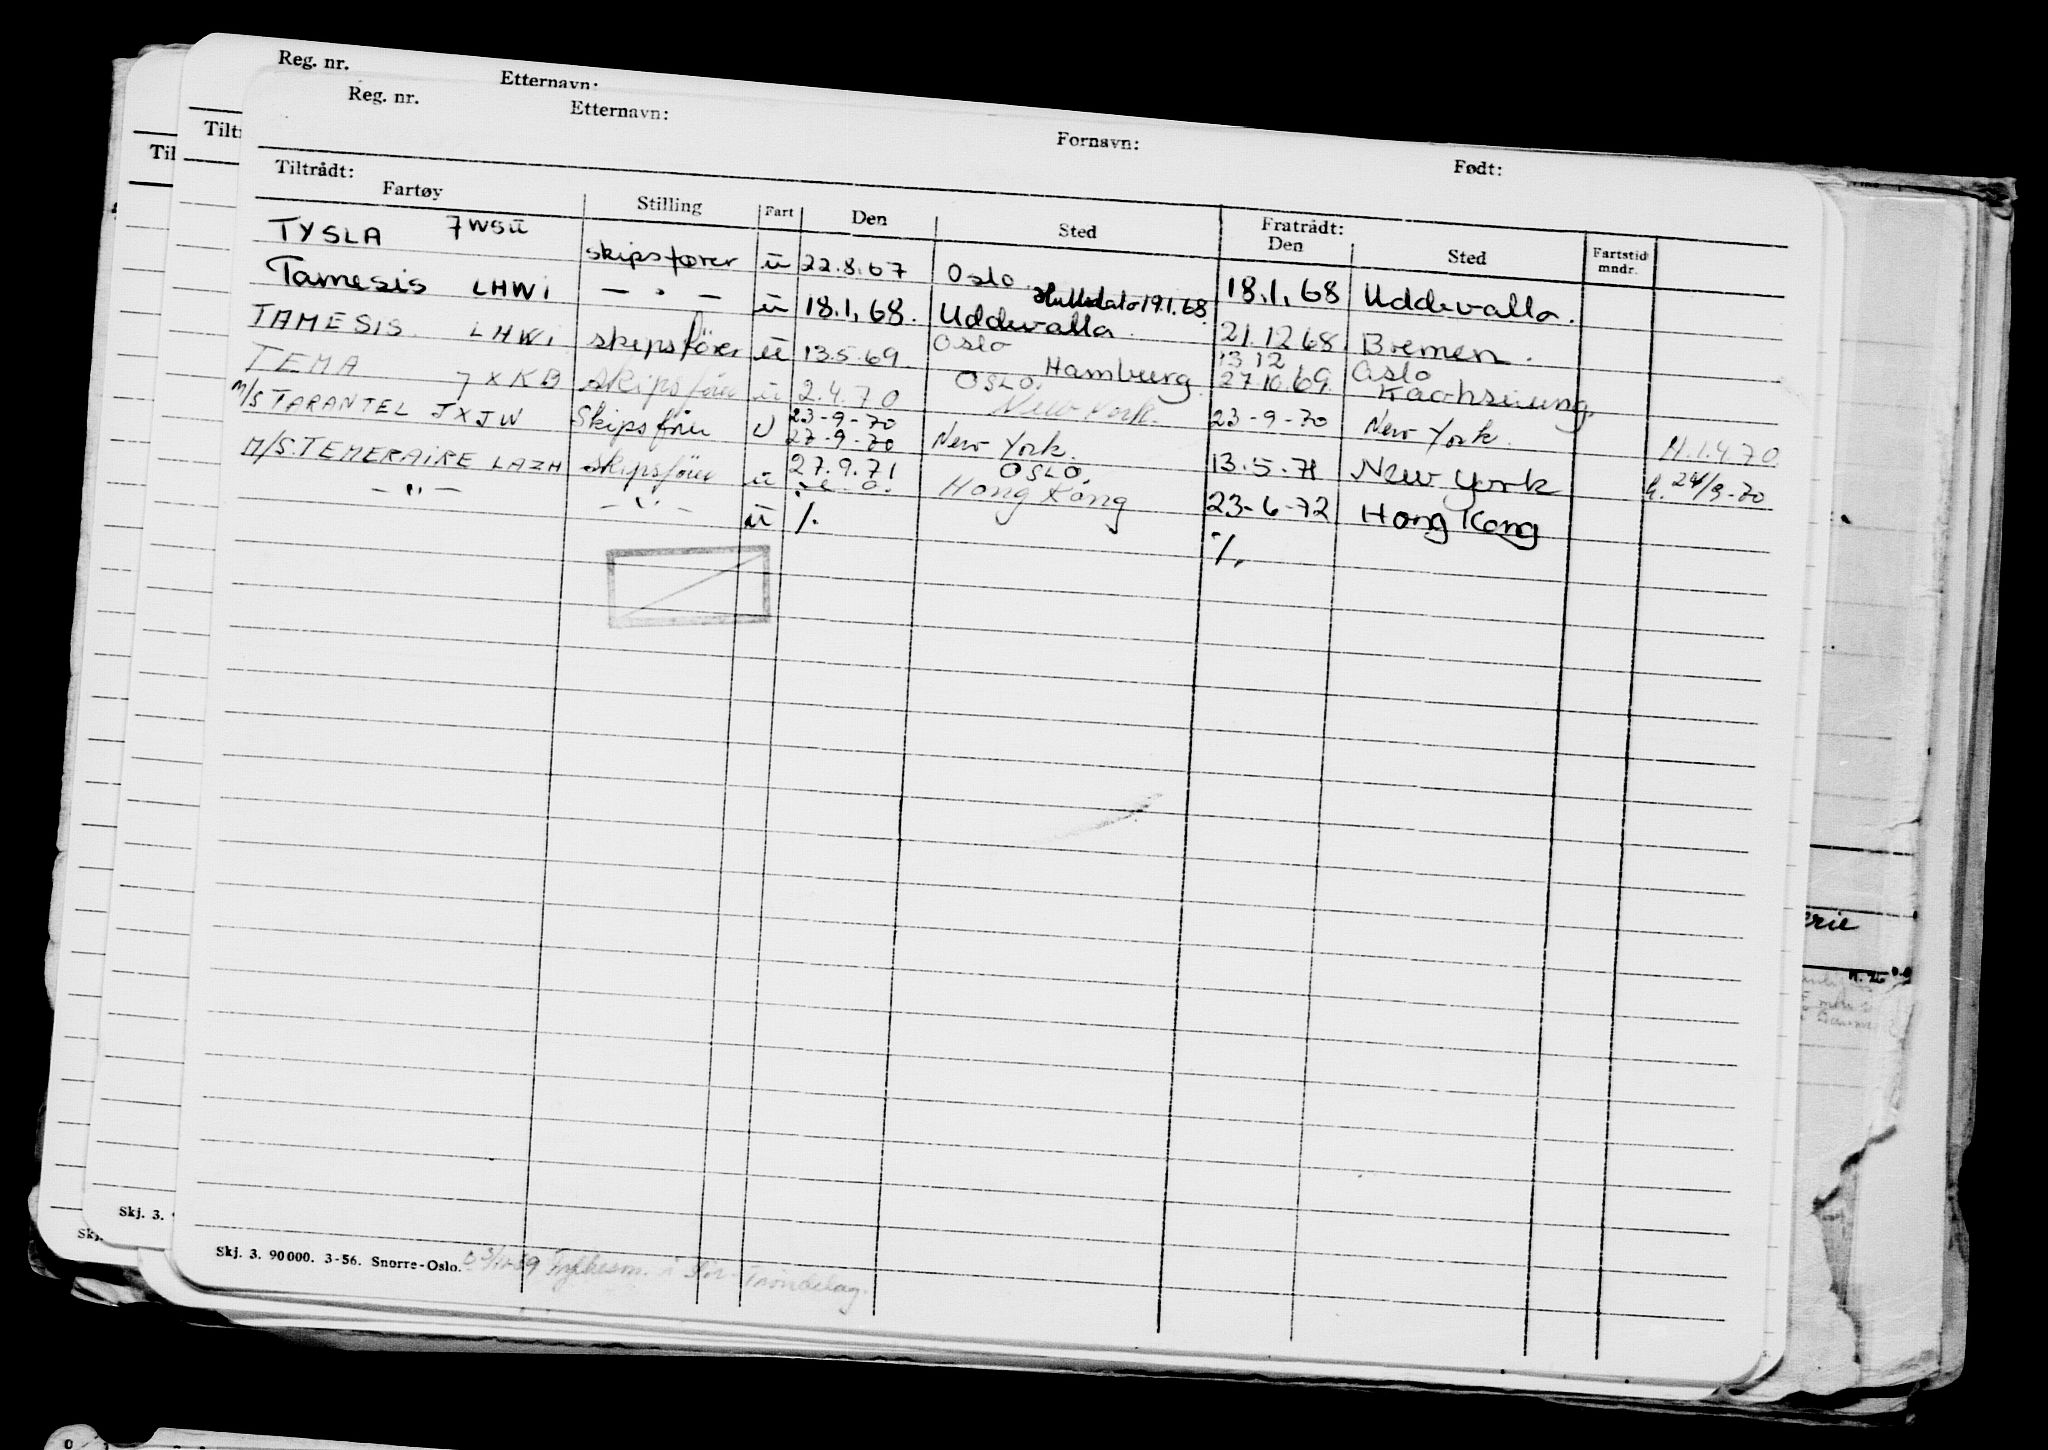 Reg. nr. Etternavn:
Reg. nr. Etternavn: Fornavn: Født:
Tilt
Til
Tiltrådt: Fratrådt:
Fartøy Stilling Fart Den Sted Den Sted Fartstid mndr.
TYSLA 7WSU skipsfører u 22.8.67 Oslo 18.1.68 Uddevalla.
Tamesis LHWI — " — u 18.1.68. Uddevalla. 19.1.68 21.12 68. Bremen.
TAMESIS. LHWI skipsförer u 13.5.69. Oslo Hamburg 13 12 27.10.69. Oslo
TEMA 7XKB skipsförer u 2.4.70 OSLO. New York. 23-9-70 New York. H.1.4.70.
M/S TARANTEL JXJW Skipsförer U 23-9-70 27-9-70 New York. 13.5.71 New York h. 24/9-70
M/S. TEMERAIRE LAZH skipsförer u 27.9.71 OSLO. Hong Kong 23-6-72 Hong Kong
— " — — " — u %. %.
erie
Skj. 3.
Skj.
Skj. 3. 90000. 3-56. Snorre-Oslo. Fylkesm. i Sør-Trøndelag.